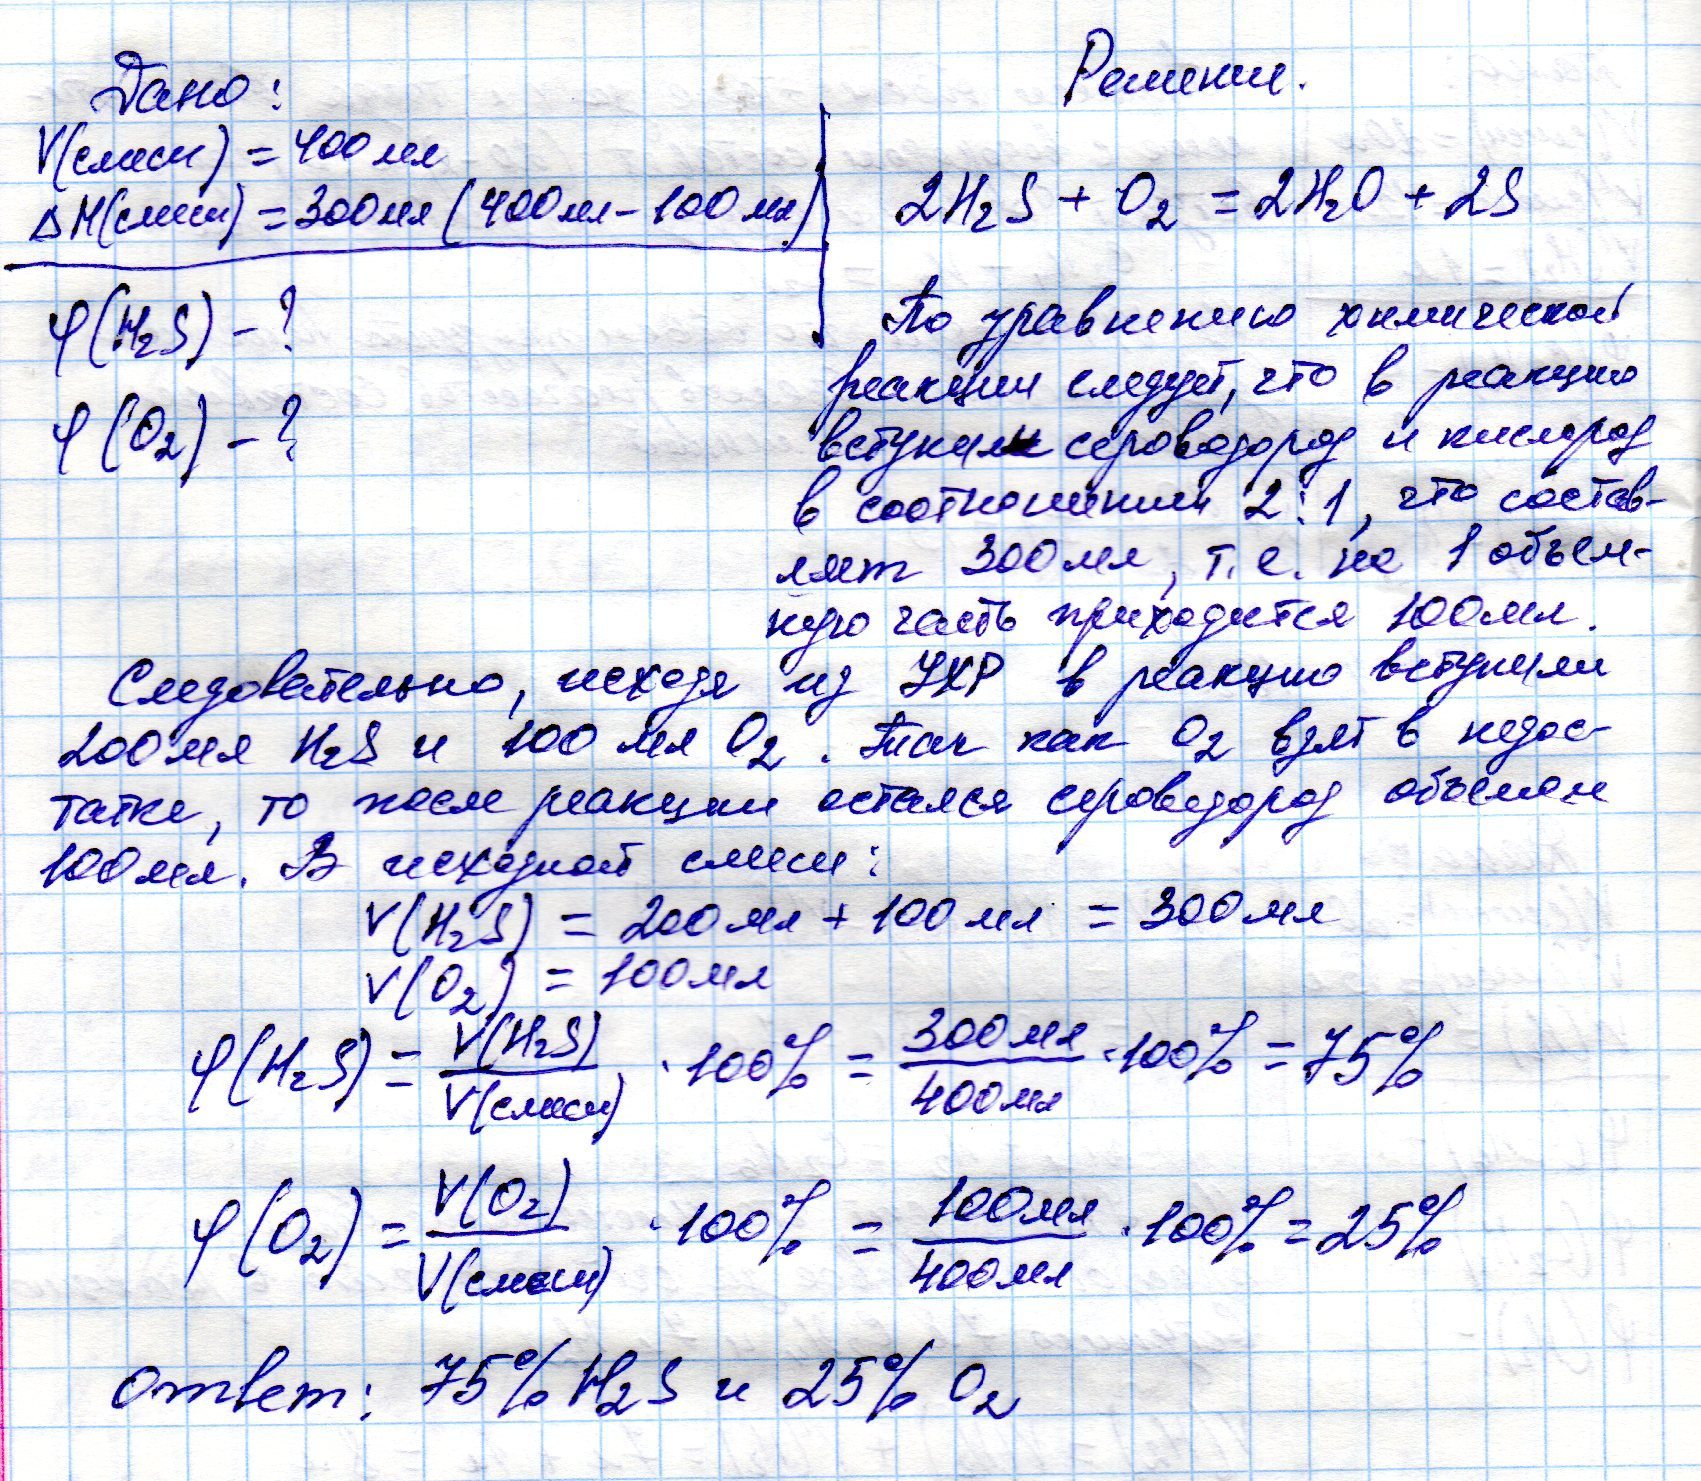 Дано:
V(смеси) = 400 мл
ΔН(смеси) = 300 мл (400 мл - 100 мл)
φ(H₂S) - ?
φ(O₂) - ?
Решение.
2H₂S + O₂ = 2H₂O + 2S
По уравнению химической
реакции следует, что в реакцию
вступили сероводород и кислород
в соотношении 2:1, что состав-
ляет 300 мл, т.е. на 1 объем-
ную часть приходится 100 мл.
Следовательно, исходя из УХР в реакцию вступили
200 мл H₂S и 100 мл O₂. Так как O₂ взят в недос-
татке, то после реакции остался сероводород объемом
100 мл. В исходной смеси:
V(H₂S) = 200 мл + 100 мл = 300 мл
V(O₂) = 100 мл
φ(H₂S) = V(H₂S)/V(смеси) · 100% = 300 мл/400 мл · 100% = 75%
φ(O₂) = V(O₂)/V(смеси) · 100% = 100 мл/400 мл · 100% = 25%
Ответ: 75% H₂S и 25% O₂